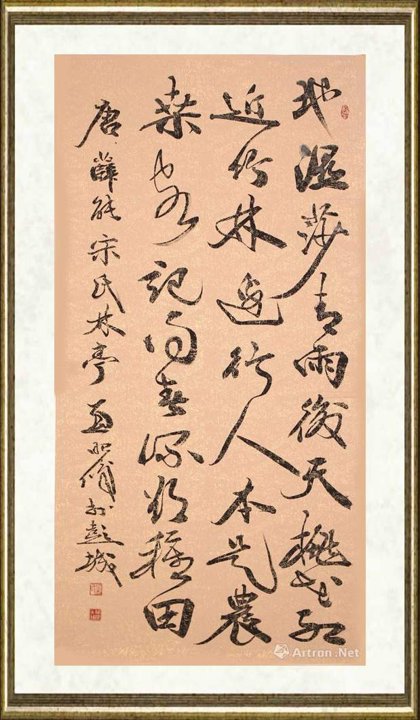 地濕莎青雨後天桃花紅
近竹林邊行人本是農
桑客記得春深欲種田
唐薛能宋氏林亭 於彭城
Artron.Net